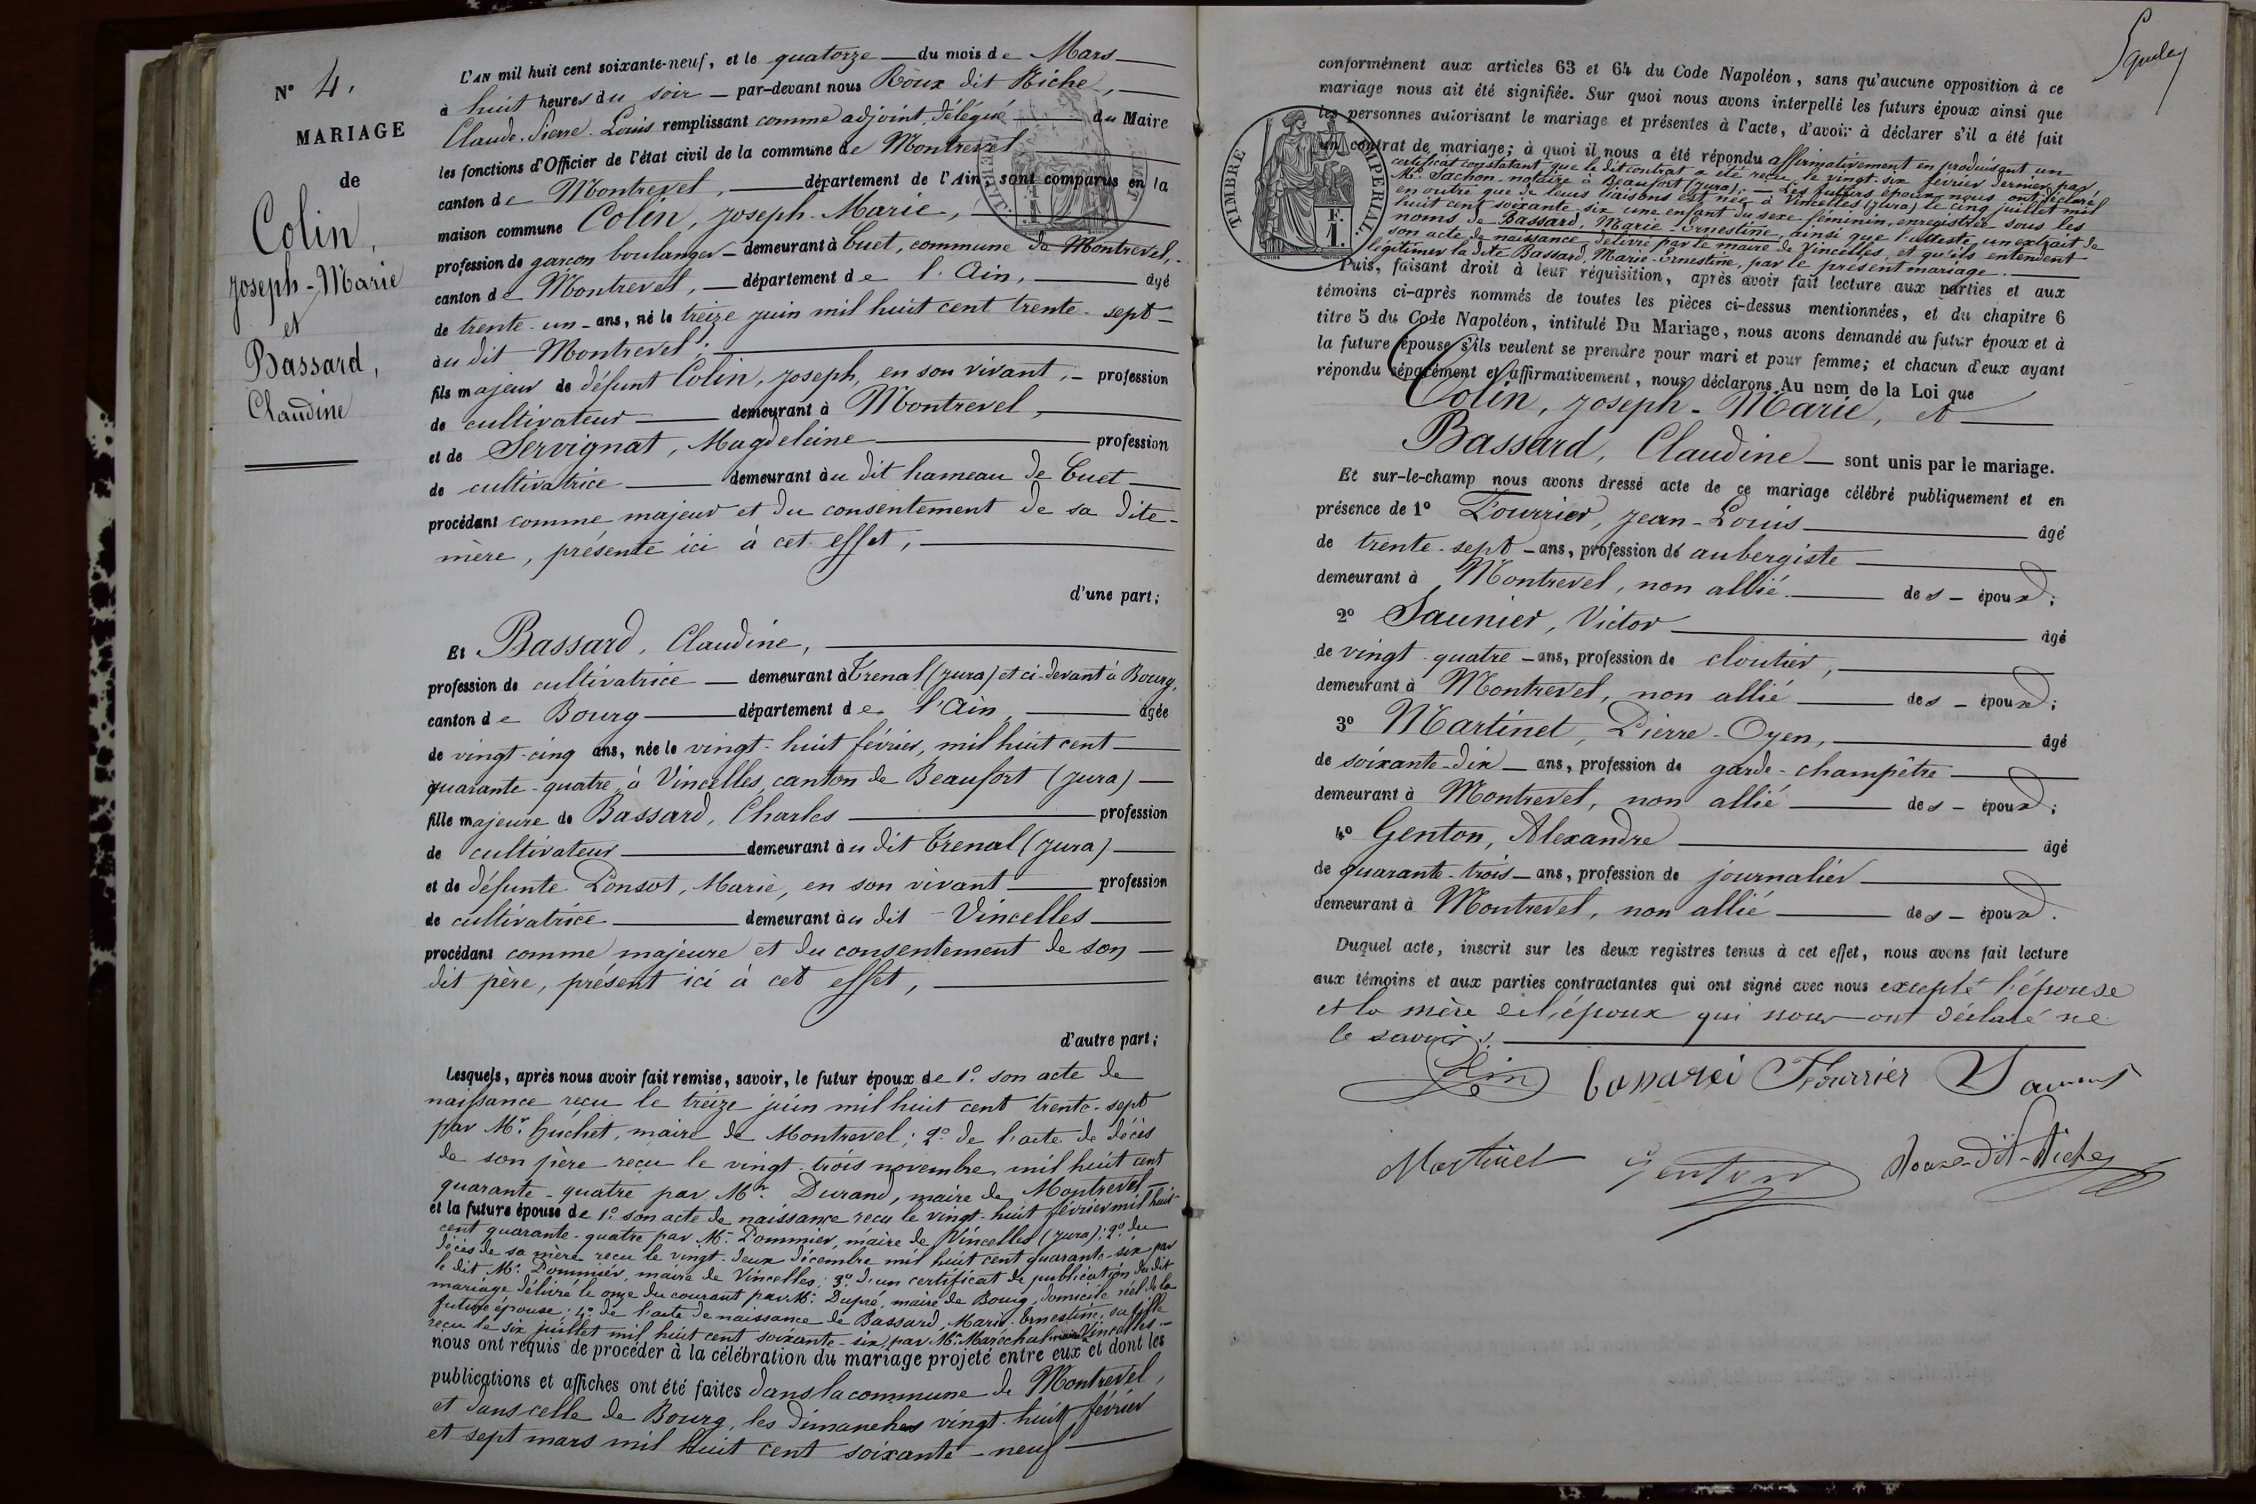 N° 4.
MARIAGE
de
Colin,
Joseph-Marie
et
Bassard,
Claudine
L'AN mil huit cent soixante-neuf, et le quatorze du mois de Mars
à huit heures du soir par-devant nous Roux dit Riche,
Claude-Pierre-Louis remplissant comme adjoint délégué du Maire
les fonctions d'Officier de l'état civil de la commune de Montrevel
canton de Montrevel, département de l'Ain, sont comparus en la
maison commune Colin, Joseph-Marie,
profession de garçon boulanger demeurant à Cuet, commune de Montrevel,
canton de Montrevel, département de l'Ain, âgé
de trente-un ans, né le treize juin mil huit cent trente-sept
au dit Montrevel;
fils majeur de défunt Colin, Joseph, en son vivant, profession
de cultivateur demeurant à Montrevel,
et de Servignat, Magdeleine profession
de cultivatrice demeurant au dit hameau de Cuet
procédant comme majeur et du consentement de sa dite
mère, présente ici à cet effet,
d'une part;
Et Bassard, Claudine,
profession de cultivatrice demeurant à Trenal (Jura) et ci-devant à Bourg,
canton de Bourg département de l'Ain, âgée
de vingt-cinq ans, née le vingt-huit février, mil huit cent
quarante-quatre, à Vincelles, canton de Beaufort (Jura)
fille majeure de Bassard, Charles profession
de cultivateur demeurant au dit Trenal (Jura)
et de défunte Ponsot, Marie, en son vivant profession
de cultivatrice demeurant au dit Vincelles
procédant comme majeure et du consentement de son
dit père, présent ici à cet effet,
d'autre part;
Lesquels, après nous avoir fait remise, savoir, le futur époux de 1° son acte de
naissance reçu le treize juin mil huit cent trente-sept
par Mr. Huchet, maire de Montrevel; 2° de l'acte de décès
de son père reçu le vingt-trois novembre mil huit cent
quarante-quatre par Mr. Durand, maire de Montrevel
et la future épouse de 1° son acte de naissance reçu le vingt-huit février mil huit
cent quarante-quatre par Mr. Pommier, maire de Vincelles (Jura); 2° du
décès de sa mère reçu le vingt-deux décembre mil huit cent quarante-six par
le dit Mr. Pommier, maire de Vincelles; 3° d'un certificat de publication du dit
mariage délivré le onze du courant par Mr. Dupré, maire de Bourg, domicile réel de la
future épouse; 4° de l'acte de naissance de Bassard, Marie-Ernestine, sa fille
reçu le six juillet mil huit cent soixante-six par Mr. Maréchal maire Vincelles
nous ont requis de procéder à la célébration du mariage projeté entre eux et dont les
publications et affiches ont été faites dans la commune de Montrevel,
et dans celle de Bourg, les dimanches vingt-huit février
et sept mars mil huit cent soixante-neuf
conformément aux articles 63 et 64 du Code Napoléon, sans qu'aucune opposition à ce
mariage nous ait été signifiée. Sur quoi nous avons interpellé les futurs époux ainsi que
les personnes autorisant le mariage et présentes à l'acte, d'avoir à déclarer s'il a été fait
un contrat de mariage; à quoi il nous a été répondu affirmativement en produisant un
certificat constatant que le dit contrat a été reçu le vingt-six février dernier, par
Me. Sachon, notaire à Beaufort (Jura); — Les futurs époux nous ont déclaré
en outre que de leurs liaisons est née à Vincelles (Jura) le cinq juillet mil
huit cent soixante-six une enfant du sexe féminin, enregistrée sous les
noms de Bassard, Marie-Ernestine, ainsi que l'atteste un extrait de
son acte de naissance délivré par le maire de Vincelles, et qu'ils entendent
légitimer la dite Bassard, Marie-Ernestine, par le présent mariage.
Puis, faisant droit à leur réquisition, après avoir fait lecture aux parties et aux
témoins ci-après nommés de toutes les pièces ci-dessus mentionnées, et du chapitre 6
titre 5 du Code Napoléon, intitulé Du Mariage, nous avons demandé au futur époux et à
la future épouse s'ils veulent se prendre pour mari et pour femme; et chacun d'eux ayant
répondu séparément et affirmativement, nous déclarons Au nom de la Loi que
Colin, Joseph-Marie, et
Bassard, Claudine sont unis par le mariage.
Et sur-le-champ nous avons dressé acte de ce mariage célébré publiquement et en
présence de 1° Fourrier, Jean-Louis âgé
de trente-sept ans, profession de aubergiste
demeurant à Montrevel, non allié des époux;
2° Saunier, Victor âgé
de vingt-quatre ans, profession de cloutier,
demeurant à Montrevel, non allié des époux;
3° Martinet, Pierre-Oyen, âgé
de soixante-dix ans, profession de garde-champêtre
demeurant à Montrevel, non allié des époux;
4° Genton, Alexandre âgé
de quarante-trois ans, profession de journalier
demeurant à Montrevel, non allié des époux.
Duquel acte, inscrit sur les deux registres tenus à cet effet, nous avons fait lecture
aux témoins et aux parties contractantes qui ont signé avec nous excepté l'épouse
et la mère de l'époux qui nous ont déclaré ne
le savoir.
Colin Fourrier Saunier
Martinet Genton Roux-dit-Riche
TIMBRE IMPERIAL.
F.
1.